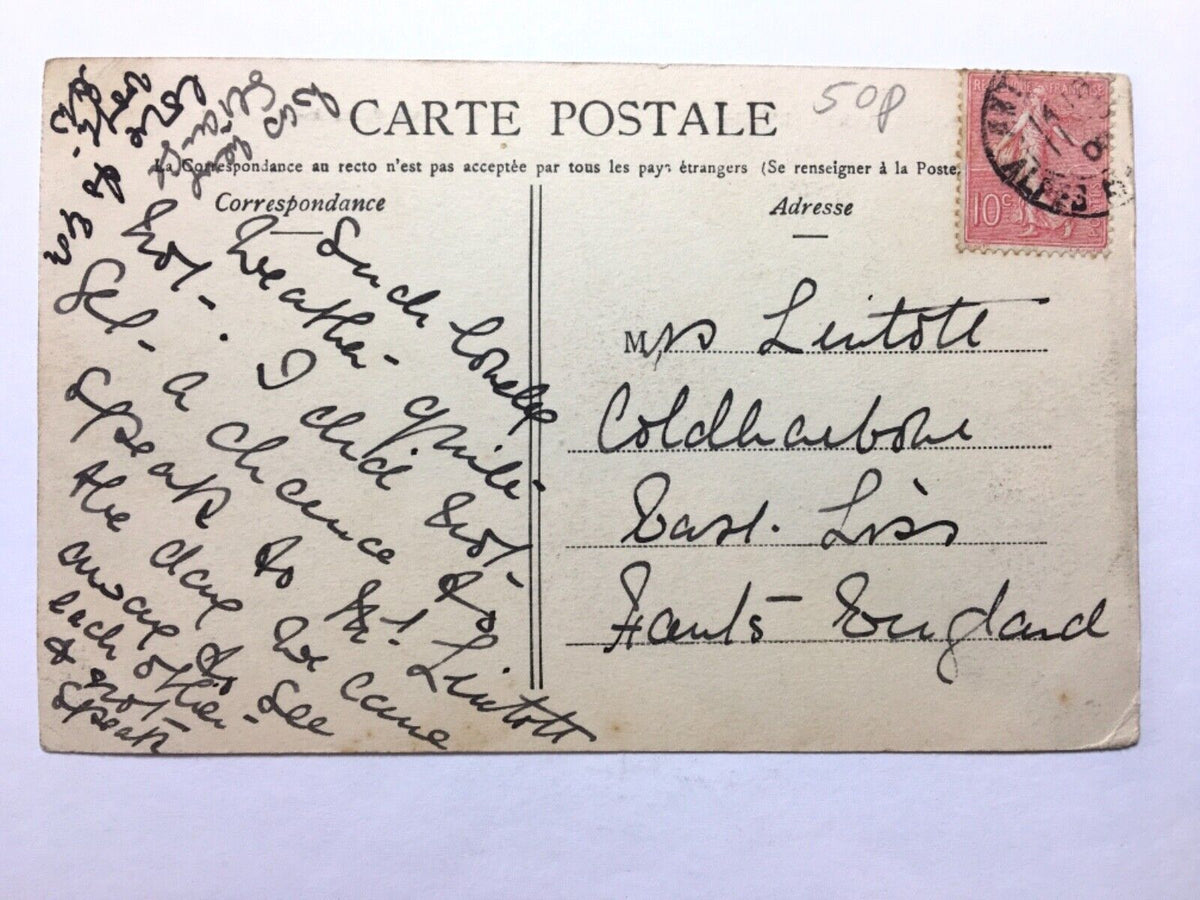 CARTE POSTALE
50p
La Correspondance au recto n'est pas acceptée par tous les pays étrangers (Se renseigner à la Poste
Correspondance
Adresse
Such lovely
Weather - quite -
hot - . I did not -
Get - a chance to
Speak to Mr. Lintott
the day he came
away to see
each other -
& not -
Speak
Mrs Lintott
Coldharbour
East. Liss
Hants England
10c
ALPES